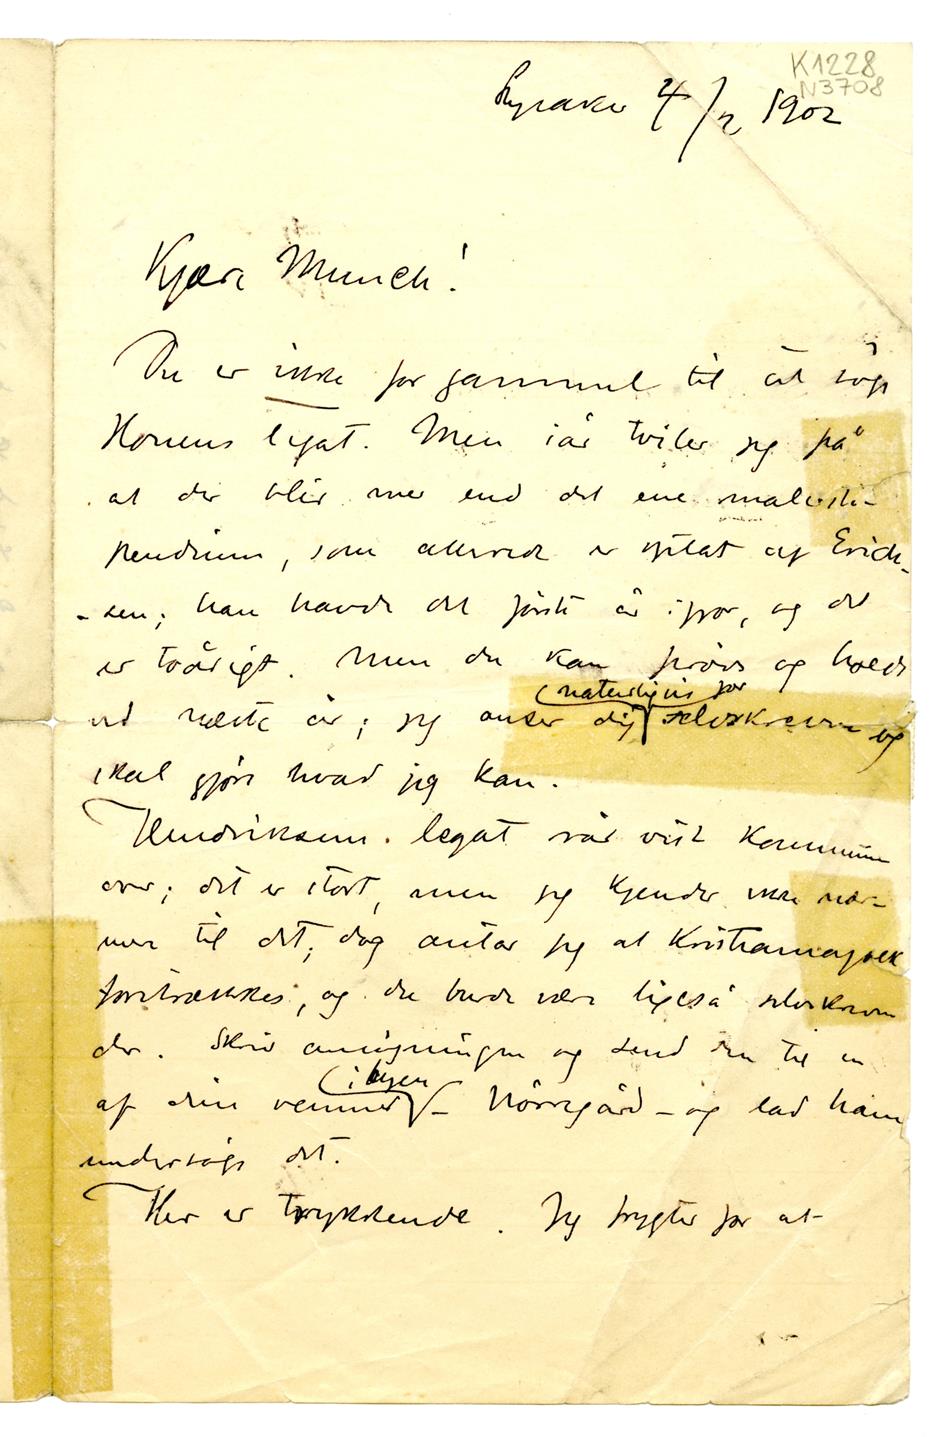 K1228
N3708
Lysaker 4/2 1902
Kjære Munch!
Du er ikke for gammel til at søge
Honens legat. Men iår tviler jeg på
at der blir mer end det ene malersti-
pendium, som allerede er optat af Erich-
-sen; han havde det første år ifjor, og det
er toårigt. Men du kan prøve og holde
ved næste år; jeg anser dig naturligvis for selvskreven og
skal gjøre hvad jeg kan.
Hendriksens legat rår vist Kommunen
over; det er stort, men jeg kjender ikke nær-
mere til det; dog antar jeg at Kristianiafolk
foretrækkes, og du burde være ligeså selvskreven
der. Skriv ansøgningen og send den til en
af dine venner i byen – Nørregård – og lad ham
undersøge det.
Her er trykkende. Jeg frygter for at